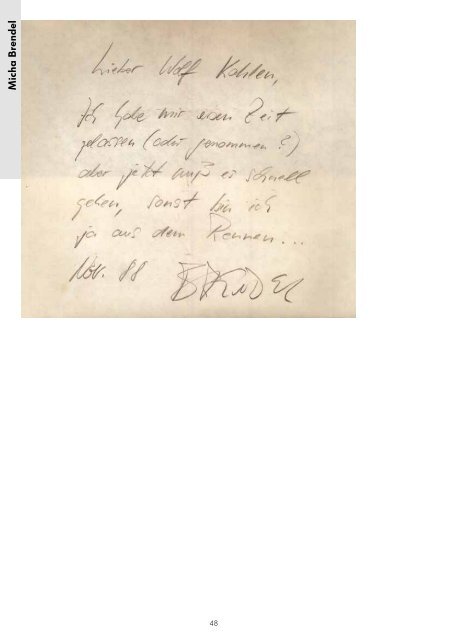 Micha Brendel
Lieber Wolf Kahlen,
Ich habe mir eben Zeit
gelassen (oder genommen?)
aber jetzt muß es schnell
gehen, sonst bin ich
ja aus dem Rennen...
Nov. 88 BRENDEL
48